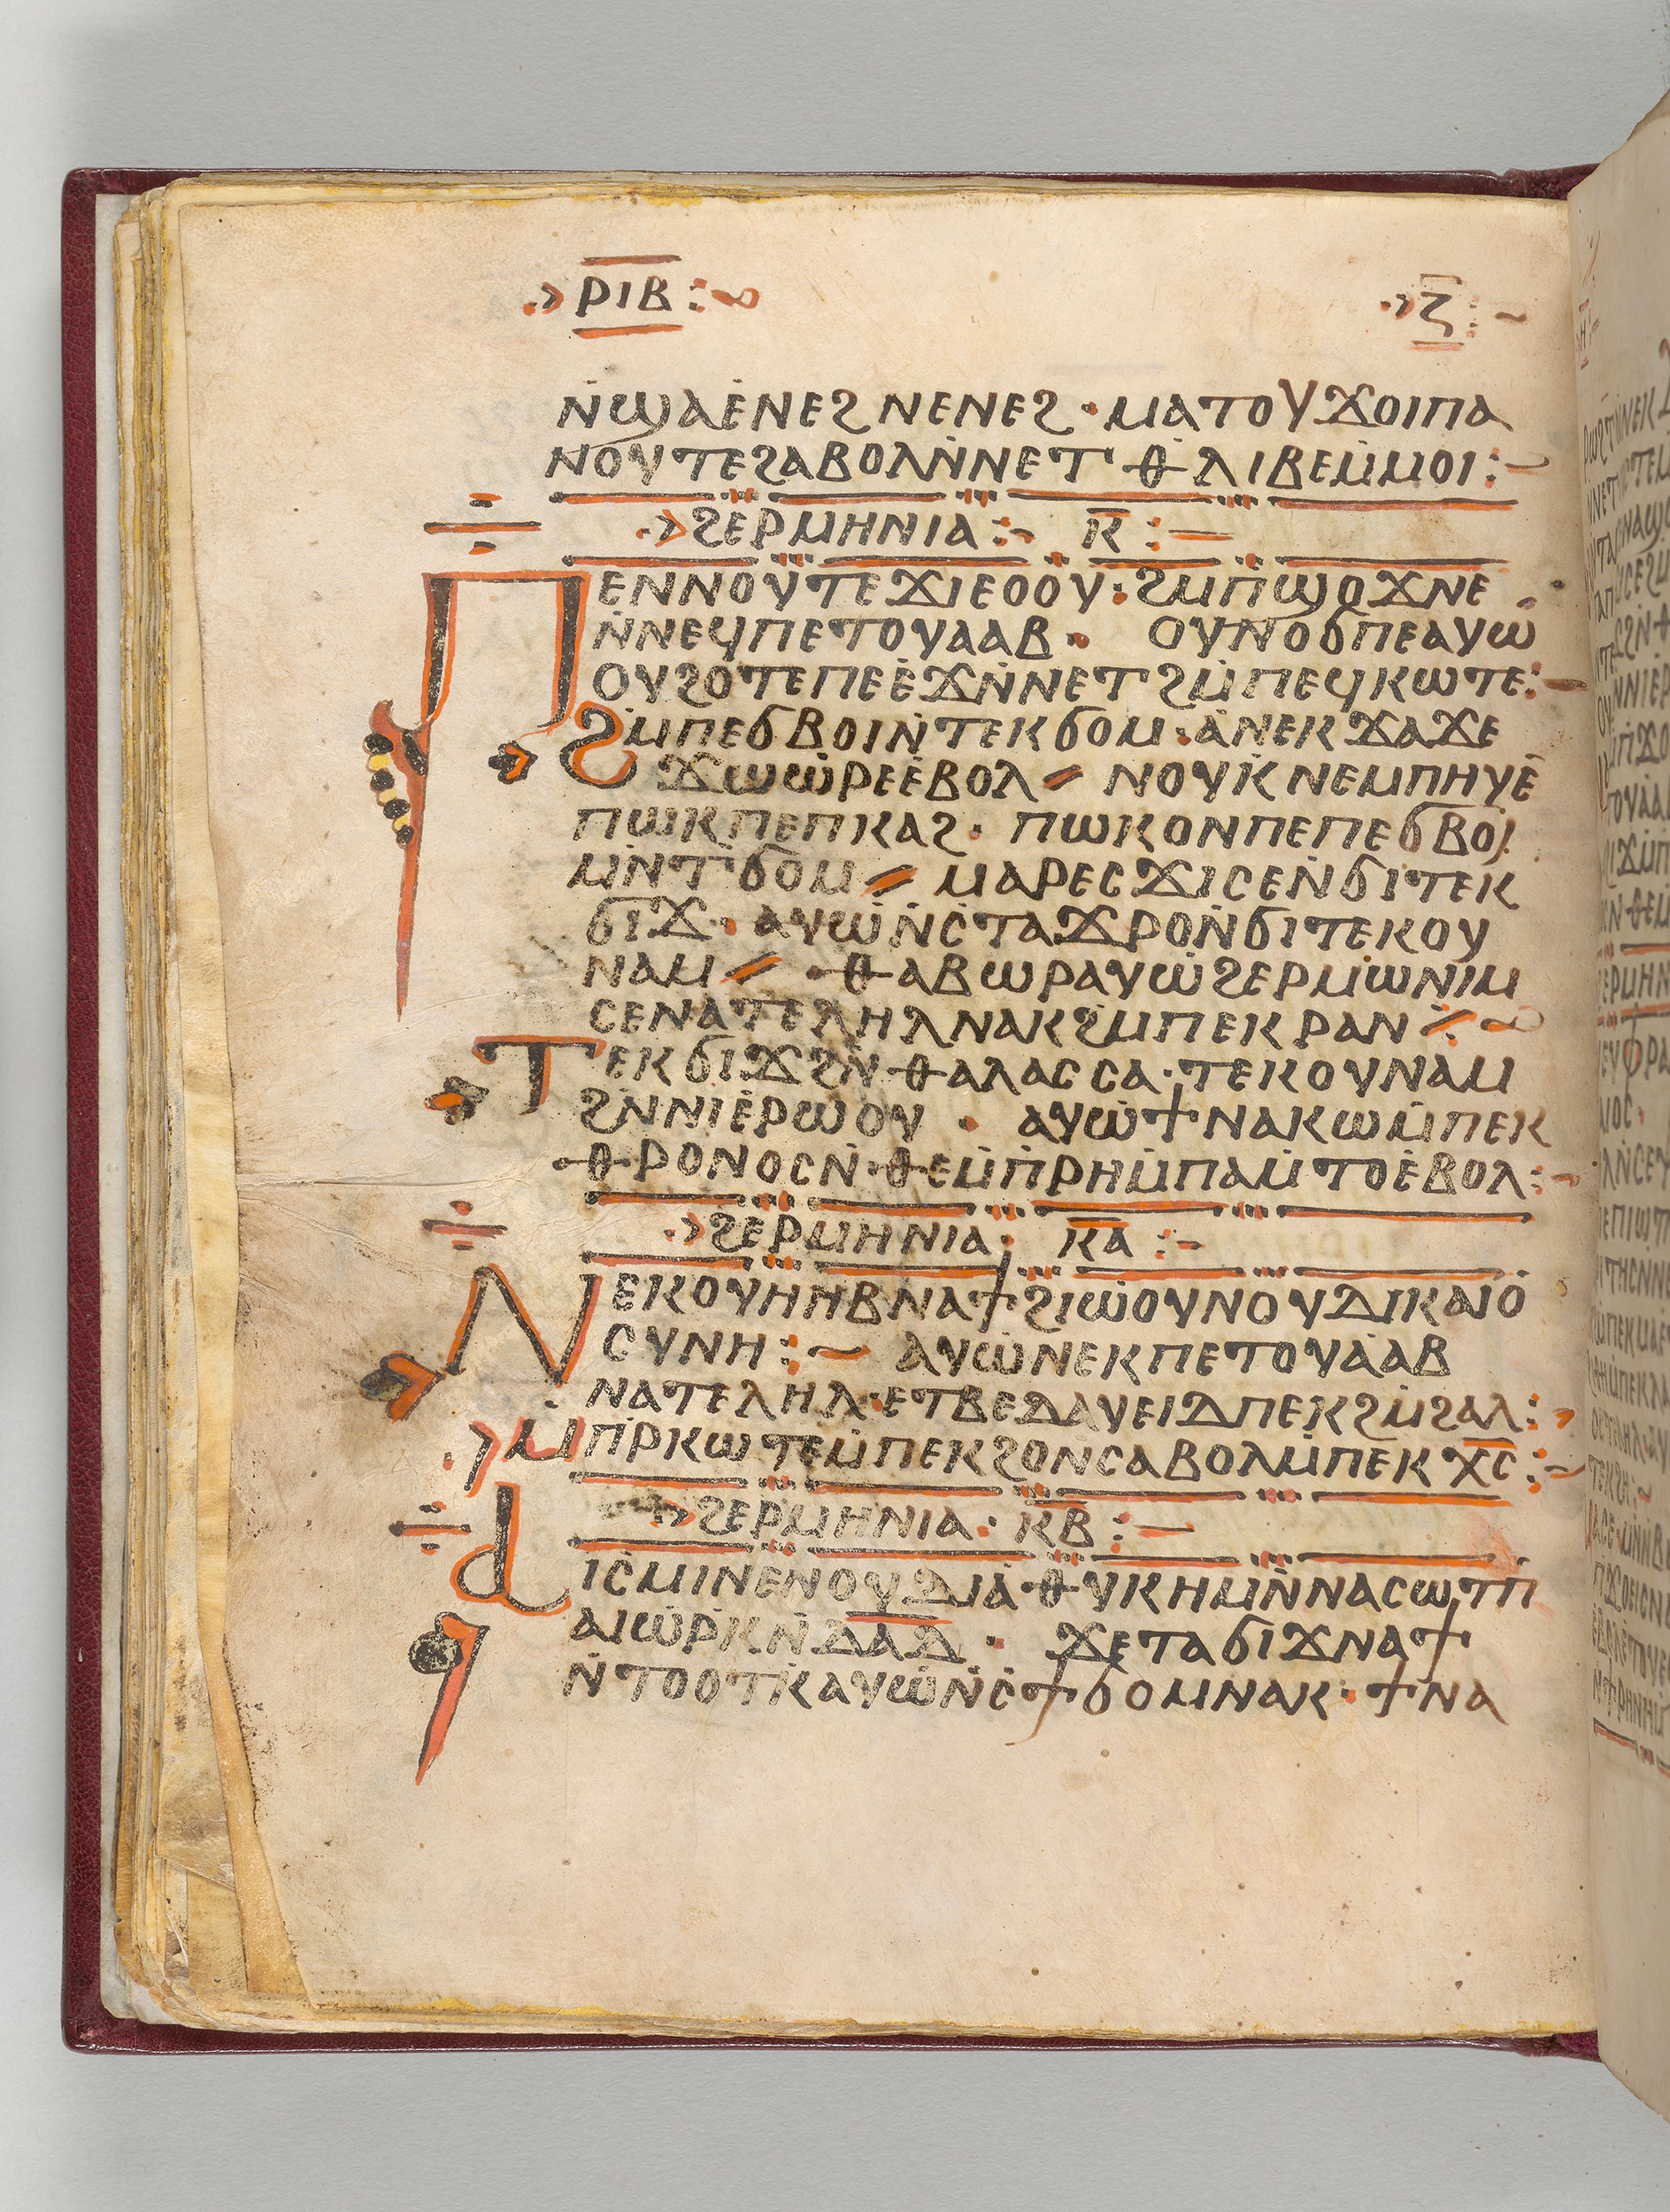 ⲣⲓⲃ ⲍ
ⲛ̇ϣⲁⲉ̇ⲛⲉϩ ⲛⲉⲛⲉϩ · ⲙⲁⲧⲟⲩϫⲟⲓⲡⲁ
ⲛⲟⲩⲧⲉϩⲁⲃⲟⲗⲛ̇ⲛⲉⲧⲑⲗⲓⲃⲉⲙ̇ⲙⲟⲓ:
ϩⲉⲣⲙⲏⲛⲓⲁ: ⲕ̅:
ⲡⲉⲛⲛⲟⲩⲧⲉϫⲓⲉⲟⲟⲩ: ϩⲙⲡϣⲟϫⲛⲉ
ⲛ̇ⲛⲉϥⲡⲉⲧⲟⲩⲁⲁⲃ · ⲟⲩⲛⲟϭⲡⲉⲁⲩⲱ
ⲟⲩϩⲟⲧⲉⲡⲉⲉ̇ϫⲛ̇ⲛⲉⲧϩⲙ̇ⲡⲉϥⲕⲱⲧⲉ:
ϩⲙⲡⲉϭⲃⲟⲓⲛ̇ⲧⲉⲕϭⲟⲙ · ⲁ̇ⲛⲉⲕϫⲁϫⲉ
ϫⲱⲱ̇ⲣⲉⲉ̇ⲃⲟⲗ ⲛⲟⲩⲕ̇ⲛⲉⲙⲡⲏⲩⲉ̇
ⲡⲱⲕⲡⲉⲡⲕⲁϩ · ⲡⲱⲕⲟⲛⲡⲉⲡⲉϭⲃⲟⲓ
ⲙⲛ̇ⲧϭⲟⲙ ⲙⲁⲣⲉⲥϫⲓⲥⲉⲛ̇ϭⲓⲧⲉⲕ
ϭⲓϫ · ⲁⲩⲱ̇ⲛ̇ⲥ̇ⲧⲁϫⲣⲟⲛ̇ϭⲓⲧⲉⲕⲟⲩ
ⲛⲁⲙ ⲑⲁⲃⲱⲣⲁⲩⲱ̇ϩⲉⲣⲙⲱ̇ⲛⲓⲙ
ⲥⲉⲛⲁⲧⲉⲗⲏⲗⲛⲁⲕϩⲙⲡⲉⲕⲣⲁⲛ
ⲧⲉⲕϭⲓϫϩⲛ̇ⲑⲁⲗⲁⲥⲥⲁ · ⲧⲉⲕⲟⲩⲛⲁⲙ
ϩⲛ̇ⲛⲓⲉ̇ⲣⲱⲟⲩ · ⲁⲩⲱ̇ϯⲛⲁⲕⲱⲙ̇ⲡⲉⲕ
ⲑⲣⲟⲛⲟⲥⲛ̇ⲑⲉⲙ̇ⲡ̇ⲣⲏⲙ̇ⲡⲁⲙ̇ⲧⲟⲉ̇ⲃⲟⲗ:
ϩⲉⲣⲙⲏⲛⲓⲁ: ⲕ̅ⲁ̅:
ⲛⲉⲕⲟⲩⲏⲏⲃⲛⲁϯϩⲓⲱ̇ⲟⲩⲛⲟⲩⲇⲓⲕⲁⲓⲟ
ⲥⲩⲛⲏ: ⲁⲩⲱ̇ⲛⲉⲕⲡⲉⲧⲟⲩⲁ̇ⲁⲃ
ⲛⲁⲧⲉⲗⲏⲗ · ⲉⲧⲃⲉⲇⲁⲩⲉⲓⲇⲡⲉⲕϩⲙ̇ϩⲁⲗ:
ⲙ̇ⲡ̇ⲣⲕⲱⲧⲉⲙ̇ⲡⲉⲕϩⲟⲛ̇ⲥⲁⲃⲟⲗⲙ̇ⲡⲉⲕⲭ̅ⲥ̅:
ϩⲉⲣⲙⲏⲛⲓⲁ · ⲕ̅ⲃ̅:
ⲁⲓⲥⲙⲓⲛⲉⲛⲟⲩⲇⲓⲁ̇ⲑⲩⲕⲏⲙⲛ̇ⲛⲁⲥⲱⲧⲡ
ⲁⲓⲱ̇ⲣⲕⲛ̇ⲇ̅ⲁ̅ⲇ̅ · ϫⲉⲧⲁϭⲓϫⲛⲁϯ
ⲛ̇ⲧⲟⲟⲧⲕ̇ⲁⲩⲱ̇ⲛ̇ⲥ̇ϯϭⲟⲙⲛⲁⲕ · ϯⲛⲁ